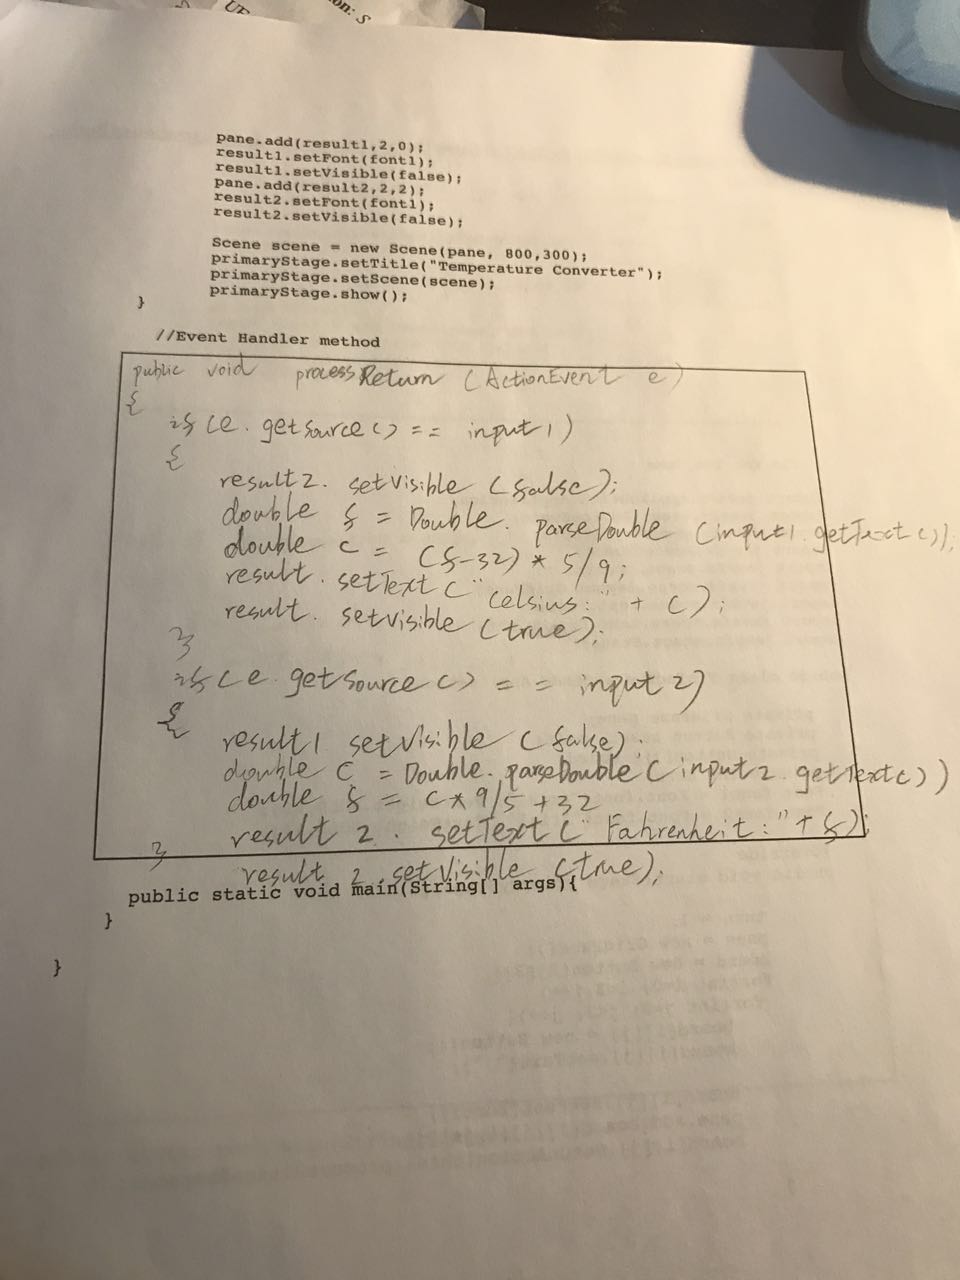 on: S
UE
pane.add(result1,2,0);
result1.setFont(font1);
result1.setVisible(false);
pane.add(result2,2,2);
result2.setFont(font1);
result2.setVisible(false);
Scene scene = new Scene(pane, 800,300);
primaryStage.setTitle("Temperature Converter");
primaryStage.setScene(scene);
primaryStage.show();
}
//Event Handler method
public void processReturn (ActionEvent e)
{
if (e.getSource() == input1)
{
result2.setVisible (false);
double f = Double.parseDouble (input1.getText());
double c = (f-32) * 5/9;
result.setText ("Celsius:" + c);
result.setVisible (true);
}
if (e.getSource() == input2)
{
result1 setVisible (false);
double c = Double.parseDouble (input2.getText())
double f = c*9/5 +32
result 2. setText (" Fahrenheit:" + f);
}
result 2.setVisible (true);
public static void main(String[] args){
}
}